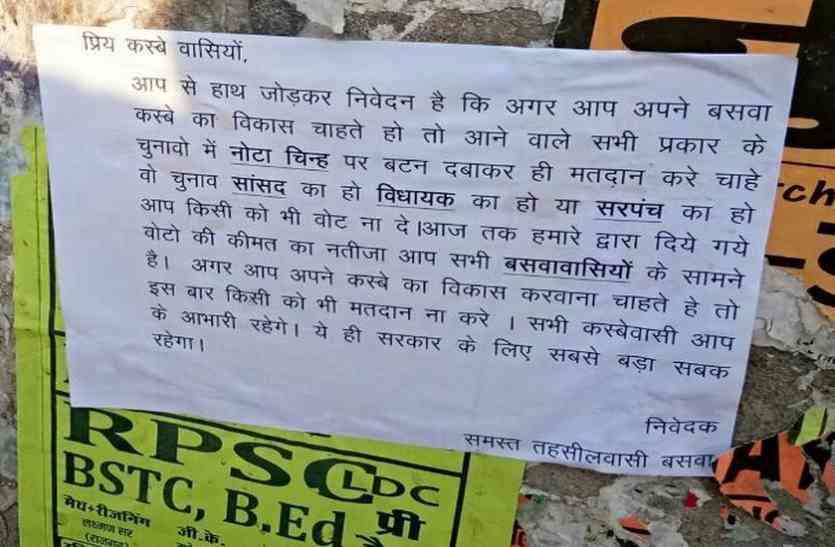 प्रिय कस्बे वासियों,
आप से हाथ जोड़कर निवेदन है कि अगर आप अपने बसवा
कस्बे का विकास चाहते हो तो आने वाले सभी प्रकार के
चुनावो में नोटा चिन्ह पर बटन दबाकर ही मतदान करे चाहे
वो चुनाव सांसद का हो विधायक का हो या सरपंच का हो
आप किसी को भी वोट ना दे।आज तक हमारे द्वारा दिये गये
वोटो की कीमत का नतीजा आप सभी बसवावासियों के सामने
है। अगर आप अपने कस्बे का विकास करवाना चाहते हे तो
इस बार किसी को भी मतदान ना करे । सभी कस्बेवासी आप
के आभारी रहेगे। ये ही सरकार के लिए सबसे बड़ा सबक
रहेगा।
निवेदक
समस्त तहसीलवासी बसवा
RPSC LDC
BSTC, B.Ed प्री
मैथ+रीजनिंग जी.के.
लक्ष्मण सर
ch